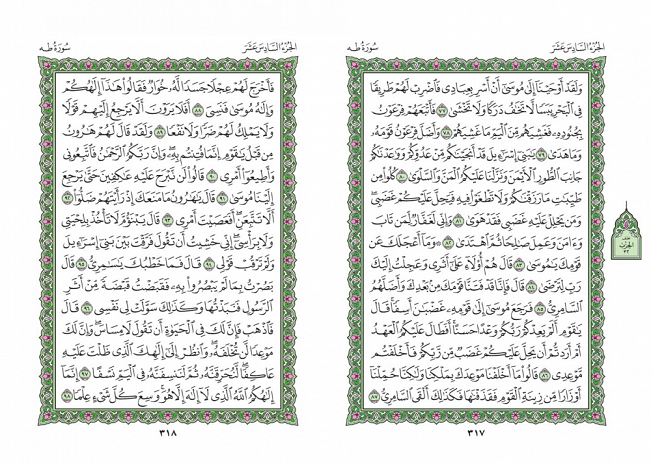 الجُزْءُ السَّادِسَ عَشَرَ
سُورَةُ طه
وَلَقَدْ أَوْحَيْنَآ إِلَىٰ مُوسَىٰٓ أَنْ أَسْرِ بِعِبَادِى فَٱضْرِبْ لَهُمْ طَرِيقًا
فِى ٱلْبَحْرِ يَبَسًا لَّا تَخَٰفُ دَرَكًا وَلَا تَخْشَىٰ ٧٧ فَأَتْبَعَهُمْ فِرْعَوْنُ
بِجُنُودِهِۦ فَغَشِيَهُم مِّنَ ٱلْيَمِّ مَا غَشِيَهُمْ ٧٨ وَأَضَلَّ فِرْعَوْنُ قَوْمَهُۥ
وَمَا هَدَىٰ ٧٩ يَٰبَنِىٓ إِسْرَٰٓءِيلَ قَدْ أَنجَيْنَٰكُم مِّنْ عَدُوِّكُمْ وَوَٰعَدْنَٰكُمْ
جَانِبَ ٱلطُّورِ ٱلْأَيْمَنَ وَنَزَّلْنَا عَلَيْكُمُ ٱلْمَنَّ وَٱلسَّلْوَىٰ ٨٠ كُلُوا۟ مِن
طَيِّبَٰتِ مَا رَزَقْنَٰكُمْ وَلَا تَطْغَوْا۟ فِيهِ فَيَحِلَّ عَلَيْكُمْ غَضَبِى
وَمَن يَحْلِلْ عَلَيْهِ غَضَبِى فَقَدْ هَوَىٰ ٨١ وَإِنِّى لَغَفَّارٌ لِّمَن تَابَ
وَءَامَنَ وَعَمِلَ صَٰلِحًا ثُمَّ ٱهْتَدَىٰ ٨٢ وَمَآ أَعْجَلَكَ عَن
قَوْمِكَ يَٰمُوسَىٰ ٨٣ قَالَ هُمْ أُو۟لَآءِ عَلَىٰٓ أَثَرِى وَعَجِلْتُ إِلَيْكَ
رَبِّ لِتَرْضَىٰ ٨٤ قَالَ فَإِنَّا قَدْ فَتَنَّا قَوْمَكَ مِنۢ بَعْدِكَ وَأَضَلَّهُمُ
ٱلسَّامِرِىُّ ٨٥ فَرَجَعَ مُوسَىٰٓ إِلَىٰ قَوْمِهِۦ غَضْبَٰنَ أَسِفًا قَالَ
يَٰقَوْمِ أَلَمْ يَعِدْكُمْ رَبُّكُمْ وَعْدًا حَسَنًا أَفَطَالَ عَلَيْكُمُ ٱلْعَهْدُ
أَمْ أَرَدتُّمْ أَن يَحِلَّ عَلَيْكُمْ غَضَبٌ مِّن رَّبِّكُمْ فَأَخْلَفْتُم
مَّوْعِدِى ٨٦ قَالُوا۟ مَآ أَخْلَفْنَا مَوْعِدَكَ بِمَلْكِنَا وَلَٰكِنَّا حُمِّلْنَآ
أَوْزَارًا مِّن زِينَةِ ٱلْقَوْمِ فَقَذَفْنَٰهَا فَكَذَٰلِكَ أَلْقَى ٱلسَّامِرِىُّ ٨٧
٣١٧
الحزب
٣٢
الجُزْءُ السَّادِسَ عَشَرَ
سُورَةُ طه
فَأَخْرَجَ لَهُمْ عِجْلًا جَسَدًا لَّهُۥ خُوَارٌ فَقَالُوا۟ هَٰذَآ إِلَٰهُكُمْ
وَإِلَٰهُ مُوسَىٰ فَنَسِىَ ٨٨ أَفَلَا يَرَوْنَ أَلَّا يَرْجِعُ إِلَيْهِمْ قَوْلًا
وَلَا يَمْلِكُ لَهُمْ ضَرًّا وَلَا نَفْعًا ٨٩ وَلَقَدْ قَالَ لَهُمْ هَٰرُونُ
مِن قَبْلُ يَٰقَوْمِ إِنَّمَا فُتِنتُم بِهِۦ وَإِنَّ رَبَّكُمُ ٱلرَّحْمَٰنُ فَٱتَّبِعُونِى
وَأَطِيعُوٓا۟ أَمْرِى ٩٠ قَالُوا۟ لَن نَّبْرَحَ عَلَيْهِ عَٰكِفِينَ حَتَّىٰ يَرْجِعَ
إِلَيْنَا مُوسَىٰ ٩١ قَالَ يَٰهَٰرُونُ مَا مَنَعَكَ إِذْ رَأَيْتَهُمْ ضَلُّوٓا۟ ٩٢
أَلَّا تَتَّبِعَنِ أَفَعَصَيْتَ أَمْرِى ٩٣ قَالَ يَبْنَؤُمَّ لَا تَأْخُذْ بِلِحْيَتِى
وَلَا بِرَأْسِىٓ إِنِّى خَشِيتُ أَن تَقُولَ فَرَّقْتَ بَيْنَ بَنِىٓ إِسْرَٰٓءِيلَ
وَلَمْ تَرْقُبْ قَوْلِى ٩٤ قَالَ فَمَا خَطْبُكَ يَٰسَٰمِرِىُّ ٩٥ قَالَ
بَصُرْتُ بِمَا لَمْ يَبْصُرُوا۟ بِهِۦ فَقَبَضْتُ قَبْضَةً مِّنْ أَثَرِ
ٱلرَّسُولِ فَنَبَذْتُهَا وَكَذَٰلِكَ سَوَّلَتْ لِى نَفْسِى ٩٦ قَالَ
فَٱذْهَبْ فَإِنَّ لَكَ فِى ٱلْحَيَوٰةِ أَن تَقُولَ لَا مِسَاسَ وَإِنَّ لَكَ
مَوْعِدًا لَّن تُخْلَفَهُۥ وَٱنظُرْ إِلَىٰٓ إِلَٰهِكَ ٱلَّذِى ظَلْتَ عَلَيْهِ
عَاكِفًا لَّنُحَرِّقَنَّهُۥ ثُمَّ لَنَنسِفَنَّهُۥ فِى ٱلْيَمِّ نَسْفًا ٩٧ إِنَّمَآ
إِلَٰهُكُمُ ٱللَّهُ ٱلَّذِى لَآ إِلَٰهَ إِلَّا هُوَ وَسِعَ كُلَّ شَىْءٍ عِلْمًا ٩٨
٣١٨